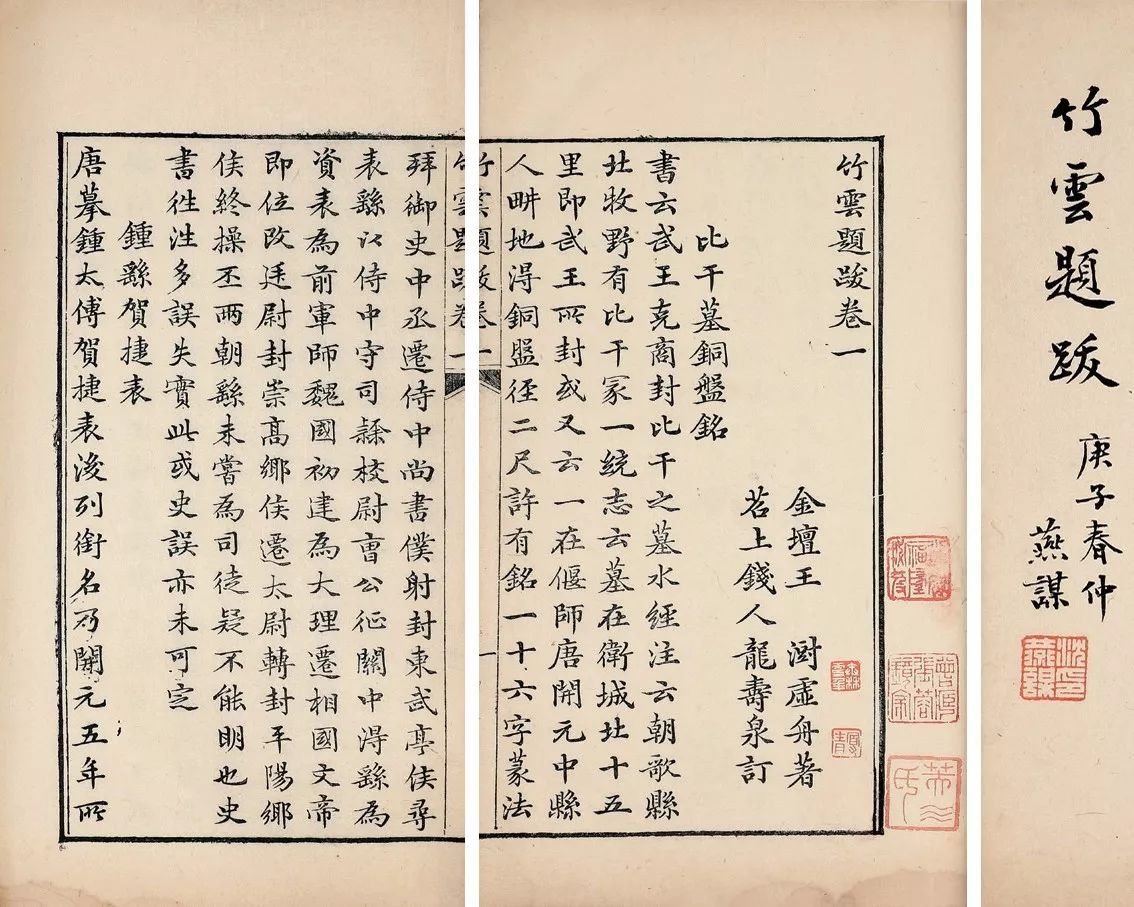 竹雲題跋
庚子春仲
燕謀
沈印燕謀
竹雲題跋卷一
金壇王 澍虛舟著
苕上錢人龍壽泉訂
比干墓銅盤銘
書云武王克商封比干之墓水經注云朝歌縣
北牧野有比干冢一統志云墓在衛城北十五
里即武王所封或又云一在偃師唐開元中縣
人畊地得銅盤徑二尺許有銘一十六字篆法
竹雲題跋卷一
一
拜御史中丞遷侍中尚書僕射封東武亭侯尋
表繇以侍中守司隸校尉曹公征關中得繇為
資表為前軍師魏國初建為大理遷相國文帝
即位改廷尉封崇高鄉侯遷太尉轉封平陽鄉
侯終操丕兩朝繇未嘗為司徒疑不能明也史
書往往多誤失實此或史誤亦未可定
鍾繇賀捷表
唐摹鍾太傅賀捷表後列銜名乃開元五年所